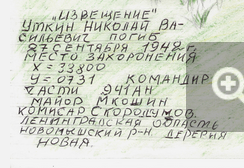 „ИЗВЕЩЕНИЕ"
УТКИН НИКОЛАЙ ВА-
СИЛЬЕВИЧ ПОГИБ
27 СЕНТЯБРЯ 1942 Г.
МЕСТО ЗАХОРОНЕНИЯ
X = 33800
У = 0731 КОМАНДИР
ЧАСТИ 941АП
МАЙОР МКОШИН
КОМИСАР СКОРОДУМОВ.
ЛЕНИНГРАДСКАЯ ОБЛАСТЬ
Р-Н ДЕРЕВНЯ
НОВАЯ.